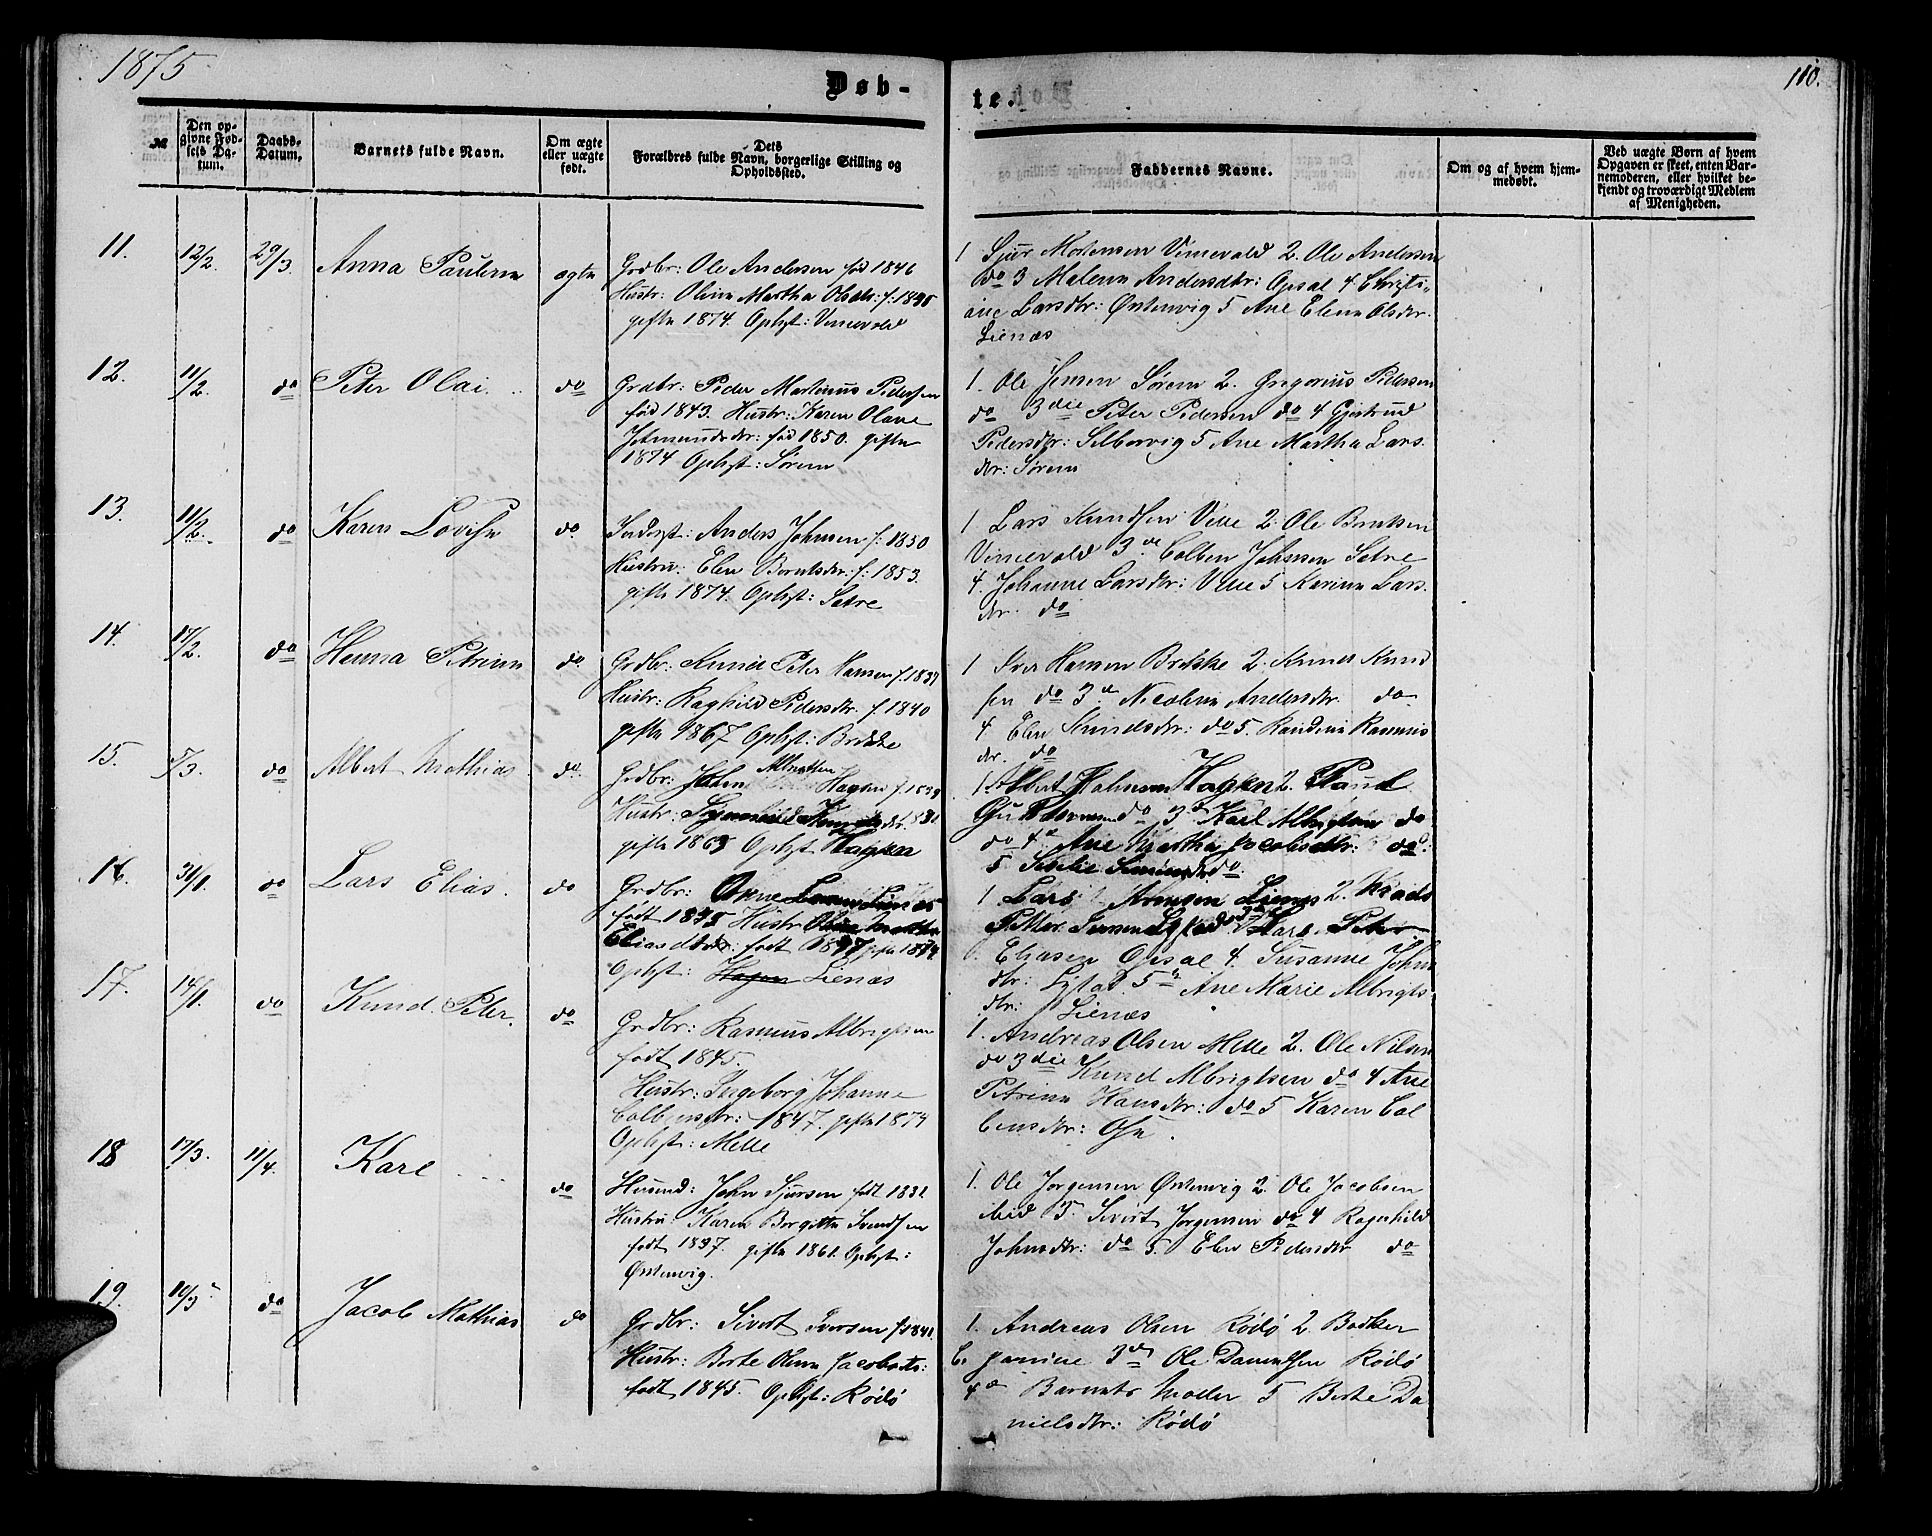 1875
110.
Døb-
te.
№
Den opgivne Fødsels Datum.
Daabs-Datum.
Barnets fulde Navn.
Om ægte eller uægte født.
Dets Forældres fulde Navn, borgerlige Stilling og Opholdssted.
Faddernes Navne.
Om og af hvem hjemmedøbt.
Ved uægte Børn af hvem Opgaven er skeet, enten Barnemoderen, eller hvilket bekjendt og troværdigt Medlem af Menigheden.
11. 12/2. 29/3. Anna Paulene ægte
Grdbr: Ole Andersen fød 1846
Hustr: Oline Martha Olsdtr: f: 1845
gifte 1874. Ophst: Vinnevold
1 Sjur Mortensen Vinnevold 2. Ole Andersen
do 3 Malene Andersdtr: Opsal 4 Christi-
ane Larsdtr: Østenvig 5 Ane Elene Olsdtr.
Lienæs
12. 11/2. do Peter Olai. do
Grdbr: Peder Martinus Pedersen
fød 1843. Hustr: Karen Olave
fød 1850. gifte
1874 Ophst: Sørem
1. Ole Jensen Sørem 2. Gregorius Pedersen
do 3die Peter Pedersen do 4 Gjertrud
Pedersdtr: 5 Ane Martha Lars
dtr: Sørem
13. 11/2. do Karen Lovise do
Inderst: Anders Johnsen f: 1850
Hustru: Elen Berntsdtr: f: 1853.
gifte 1874. Ophst: Sætre
1 Lars Knudsen 2. Ole Berntsen
Vinnevold 3de Colben Johnsen Sætre
4. Johanne Larsdtr: 5 Karine Lars.
dtr. do
14. 17/2. do Hanna Petrine do.
Grdbr: Knud Peter Hansen f. 1837
Hustr: Raghild Pedersdtr. f. 1840
gifte 1867 Ophst: Brekke
1 Iver Hansen Brekke 2. Knud Knud
sen do 3d Nicoline Andersdtr. do
4 Elen Knudsdtr: do 5. Randine Rasmus
dtr. do
15. 5/3. do Albert Mathias do.
Grdbr: John Albretsen Hagen f. 1839
Hustr:
gifte 1863 Ophst Hagen
1 Albert Johnsen Hagen 2. Paul
do 3d Karl Albrigtsen do
do 4de Ane Martha Jacobsdtr: do.
5 do.
16. 31/1. do Lars Elias. do
Grdbr: Arne Larsen Lienæs
født 1835 Hustr Oline Martha
Eliasdtr: født 1837 gifte 1874
Ophst: Hagen Lienæs
1 Lars Arnesen Lienæs 2. Knud
Petter 3die Lars Peter
Eliasen Opsal 4. Susanne Johns
dtr: 5te Ane Marie Albrigts-
dtr: Lienæs
17. 14/1. do Knud. Peter. do
Grdbr: Rasmus Albrigtsen
født 1845.
Hustr: Ingeborg Johanne
Colbensdtr: 1847. gifte 1874
Ophst: Melle
1. Andreas Olsen Melle 2. Ole Nilsen
do 3die Knud Albrigtsen do 4 Ane
Petrine Hansdtr: do 5 Karen Col
bensdtr: Ose.
18 17/3. 11/4. Karl do
Husmd: John Sjursen født 1831
Hustru: Karen Borgitte Svendsen
født 1837. gifte 1861. Ophst:
Østenvig.
1. Ole Jørgensen Østenvig 2. Ole Jacobsen
ibid 3. Sivert Jørgensen do 4 Ragnhild
Johnsdtr: do 5. Elen Pedersdtr do
19. 10/3 do Jacob Mathias do
Grdbr: Sivert Iversen f. 1841.
Hustr: Berte Oline Jacobsdtr:
født 1845. Ophst: Rødø
1. Andreas Olsen Rødø 2.
3de Ole Danielsen Rødø
4de Barnets Moder 5 Berte Da
nielsdtr: Rødø